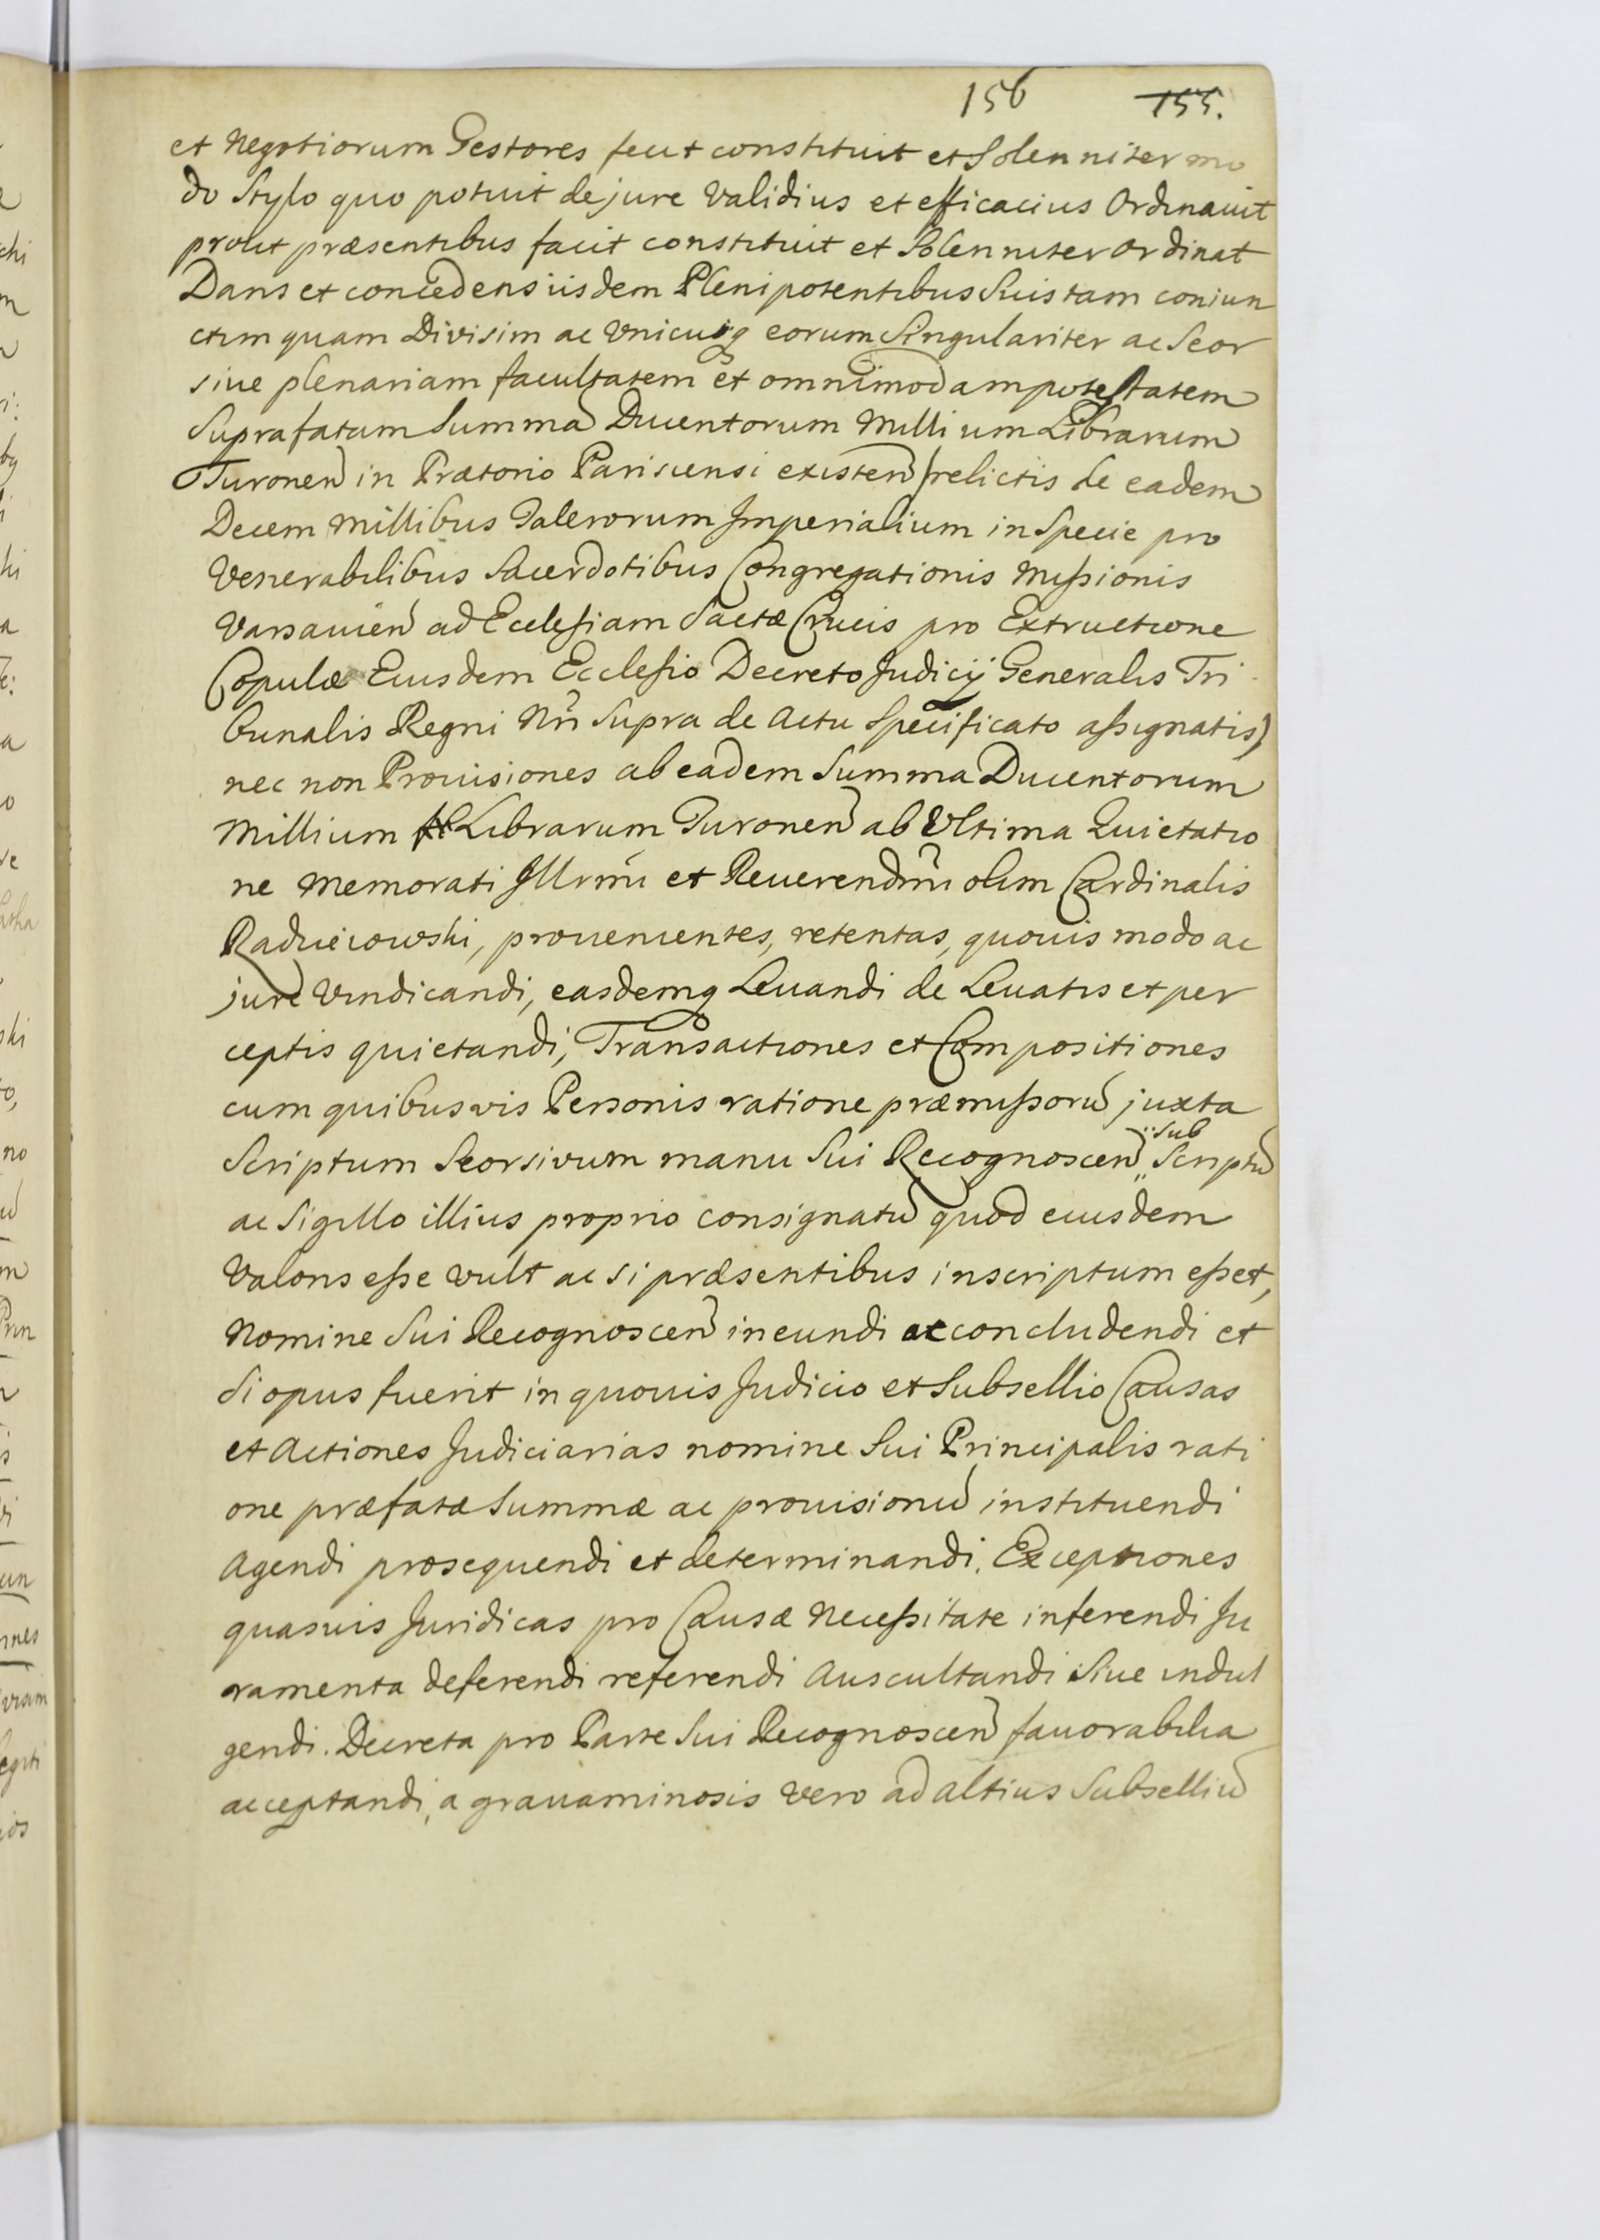 156 155.
et Negotiorum Gestores fecit constituit et Solenniter mo
do Stylo quo potuit de jure Validius et efficacius Ordinavit
prout præsentibus facit constituit et Solenniter Ordinat
Dans et concedens iisdem Plenipotentibus Suis tam coniun
ctim quam Divisim ac Unicuiq eorum Singulariter ac Seor
sive plenariam facultatem et omnimodam potestatem
Suprafatam Summã Ducentorum Millium Librarum
Turonen̄ in Prætorio Parisiensi existen̄ (relictis de eadem
Decem Millibus Talerorum Imperialium in Specie pro
Venerabilibus Sacerdotibus Congregationis Missionis
Varsavien̄ ad Ecclesiam Sactæ Crucis pro Extructione
Copulæ Eiusdem Ecclesio Decreto Judicij Generalis Tri
bunalis Regni Nr̃i Supra de Actu Specificato assignatis)
nec non Provisiones ab eadem Summa Ducentorum
Millium Librarum Turonen̄ ab Ultima Quietatio
ne Memorati Illrmi et Reverendmi olim Cardinalis
Radzieiowski, provenientes, retentas, quovis modo ac
jure Vindicandi, easdemq Levandi de Levatis et per
ceptis quietandi, Transactiones et Compositiones
cum quibusvis Personis ratione præmissorũ juxta
Scriptum Seorsivum manu Sui Recognoscen̄ Sub Scriptũ
ac Sigillo illius proprio consignatũ quod eiusdem
Valoris esse vult ac si præsentibus inscriptum esset,
Nomine Sui Recognoscen̄ ineundi ac concludendi et
Si opus fuerit in quovis Judicio et Subsellio Causas
et Actiones Judiciarias nomine Sui Principalis rati
one præfatæ Summæ ac provisionũ instituendi
Agendi prosequendi et determinandi. Exceptiones
quasvis Juridicas pro Causæ Necessitate inferendi Ju
ramenta deferendi referendi Auscultandi Sive indul
gendi. Decreta pro Parte Sui Recognoscen̄ favorabilia
acceptandi, a gravaminosis vero ad altius Subselliũ